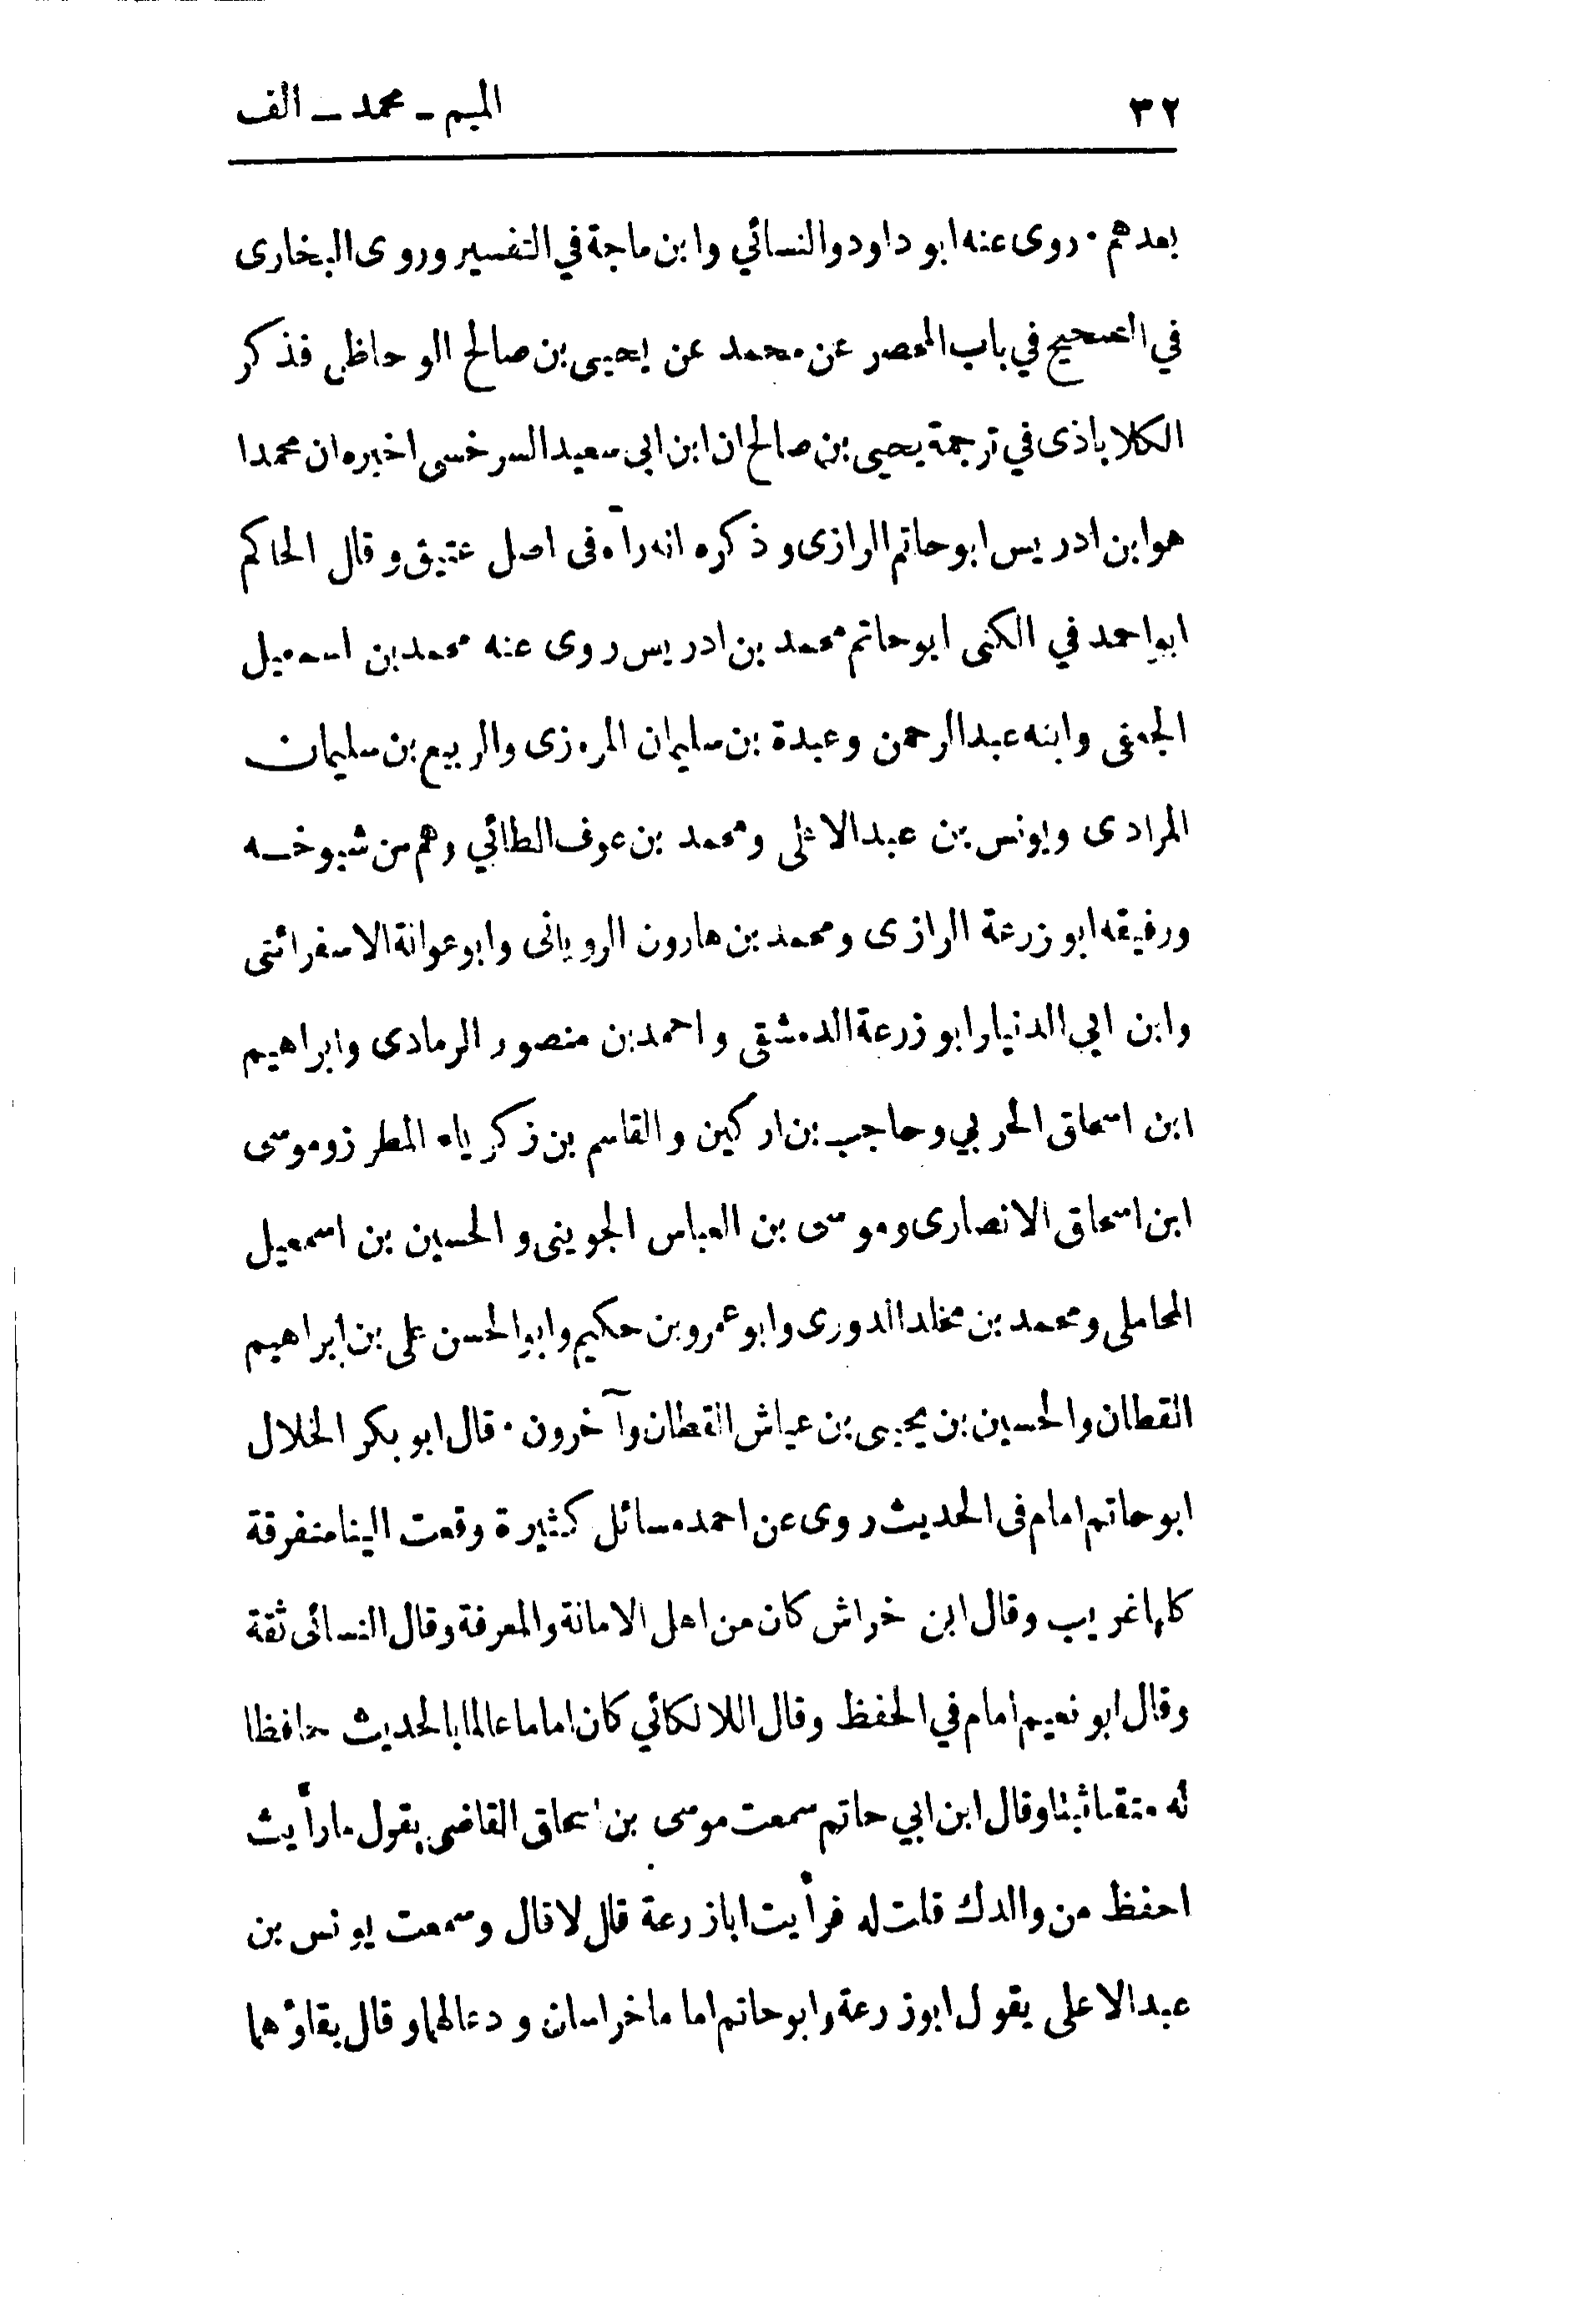 ٣٢
الميم - محمد - الف
بعدهم . روى عنه ابو داود والنسائي وابن ماجة في التفسير وروى البخارى
في الصحيح في باب المحصر عن محمد عن يحيى بن صالح الوحاظى فذكر
الكلاباذى في ترجمة يحيى بن صالح ان ابن ابى سعيد السرخسى اخبره ان محمدا
هو ابن ادريس ابو حاتم الرازى وذكره انه رآه فى اصل عتيق وقال الحاكم
ابو احمد في الكنى ابو حاتم محمد بن ادريس روى عنه محمد بن اسمعيل
الجعفى وابنه عبد الرحمن وعبدة بن سليمان المروزى والربيع بن سليمان
المرادى ويونس بن عبد الاعلى ومحمد بن عوف الطائي وهم من شيوخه
ورفيقه ابو زرعة الرازى ومحمد بن هارون الرويانى وابو عوانة الاسفرائنى
وابن ابي الدنيا وابو زرعة الدمشقى واحمد بن منصور الرمادى وابراهيم
ابن اسحاق الحربي وحاجب بن اركين والقاسم بن زكرياء المطرز وموسى
ابن اسحاق الانصارى وموسى بن العباس الجوينى والحسين بن اسمعيل
المحاملى ومحمد بن مخلد الدورى وابو عمرو بن حكيم وابو الحسن على بن ابراهيم
القطان والحسين بن يحيى بن عياش القطان وآخرون . قال ابو بكر الخلال
ابو حاتم امام فى الحديث روى عن احمد مسائل كثيرة وقعت الينا متفرقة
كلها غريب وقال ابن خراش كان من اهل الامانة والمعرفة وقال النسائى ثقة
وقال ابو نعيم امام في الحفظ وقال اللالكائي كان اماما عالما بالحديث حافظا
له متقنا ثبتا وقال ابن ابي حاتم سمعت موسى بن اسحاق القاضى يقول ما رأيت
احفظ من والدك قلت له فرأيت ابا زرعة قال لا قال وسمعت يونس بن
عبد الاعلى يقول ابو زرعة وابو حاتم اماما خراسان ودعا لهما وقال بقاؤهما